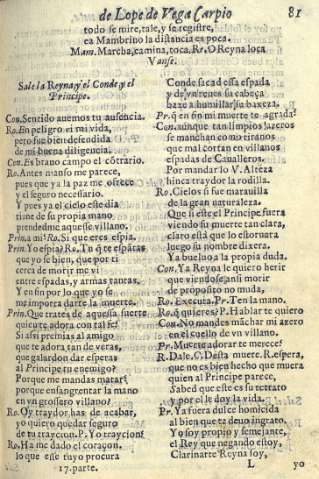 de Lope de Vega Carpio 81
todo se mire, tale, y se registre,
ea Mambrino la distancia es poca.
Mam. Marcha, camina, toca. Re. O Reyna loca
Vanse.
Sale la Reyna, y el Conde, y el
Principe.
Con. Sentido auemos tu ausencia.
Re. En peligro vi mi vida,
pero fue bien defendida
de mi buena diligencia.
Con. Es brauo campo el cõtrario.
Re. Antes manso me parece,
pues que ya la paz me ofrece
y el seguro necessario.
Y pues ya el cielo este dia
tiene de su propia mano
prendedme aquesse villano.
Prin. a mi? Re. Si que eres espia.
Prin. Yo espia? Re. Tu q̃ te espãtas
que yo se bien, que por ti
cerca de morir me vi
entre espadas, y armas tantas.
Y en fin por lo que yo se
me importa darte la muerte.
Prin. Que trates de aquessa suerte
quien te adora con tal fe?
Si assi premias al amigo
que te adora tan de veras,
que galardon dar esperas
al Principe tu enemigo?
Porque me mandas matar?
porque ensangrentar la mano
en vn grossero villano?
Re. Oy traydor has de acabar,
yo quiero quedar seguro
de tu traycion. P. Yo traycion?
Re. Ha me dado el coraçon,
lo que esse tuyo procura
17. parte.
Conde saca essa espada
y de vn reues su cabeça
baxe a humillar su baxeza.
Pr. q̃ en fin mi muerte te agrada?
Con. aunque tan limpios azeros
se manchan como tiranos
que mal cortan en villanos
espadas de Caualleros.
Por mandar lo V. Alteza
hinca traydor la rodilla.
Re. Cielos si fue marauilla
de la gran naturaleza.
Que si este el Principe fuera
viendo su muerte tan clara,
claro está que lo estoruara
luego su nombre dixera.
Ya bueluo a la propia duda.
Con. Ya Reyna le quiero herir
que viendose ansi morir
de proposito no muda,
Re. Executa. Pr. Ten la mano.
Re. q̃ quieres? P. Hablar te quiero
Con. No mandes mãchar mi azero
en el cuello de vn villano.
Pr. Muerte adorar te merece?
R. Dale. C. Desta muerte. R. espera,
que no es bien hecho que muera
quien al Principe parece,
Sabed que este es su retrato
y por el le doy la vida.
Pr. Ya fuera dulce homicida
al bien que te deuo ingrato.
Yo soy propio y semejante,
el Rey que negando estoy,
Clarinarte Reyna soy,
L yo